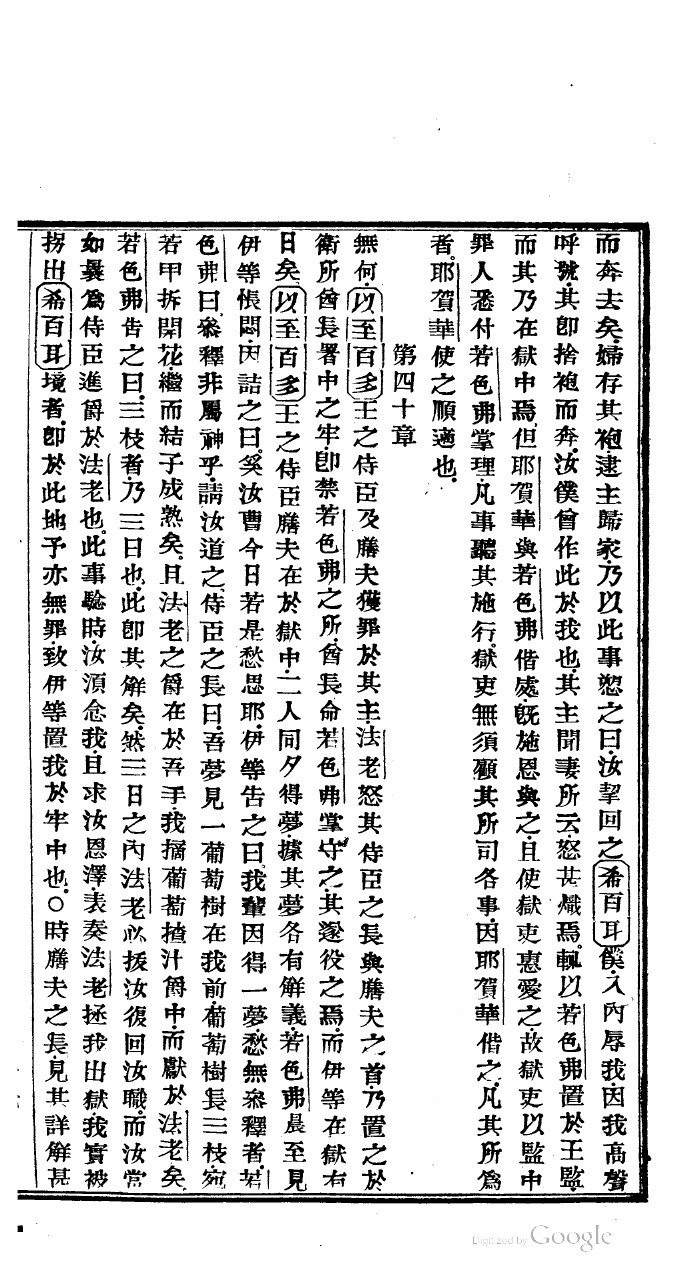 而奔去矣婦存其袍逮主歸家乃以此事愬之曰汝挈回之希百耳僕入內辱我因我高聲
呼號其卽捨袍而奔汝僕曾作此於我也其主聞妻所云怒甚熾焉輒以若色弗置於王監
而其乃在獄中焉但耶賀華與若色弗偕處旣施恩與之且使獄吏惠愛之故獄吏以監中
罪人悉付若色弗掌理凡事聽其施行獄吏無須顧其所司各事因耶賀華偕之凡其所爲
者耶賀華使之順適也
第四十章
無何以至百多王之侍臣及膳夫獲罪於其主法老怒其侍臣之長與膳夫之首乃置之於
衛所酋長署中之牢卽禁若色弗之所酋長命若色弗掌守之其遂役之焉而伊等在獄有
日矣以至百多王之侍臣膳夫在於獄中二人同夕得夢據其夢各有解義若色弗晨至見
伊等悵悶因詰之曰奚汝曹今日若是愁思耶伊等告之曰我輩因得一夢愁無叅釋者若
色弗曰叅釋非屬神乎請汝道之侍臣之長曰吾夢見一葡萄樹在我前葡萄樹長三枝宛
若甲拆開花繼而結子成熟矣且法老之爵在於吾手我摘葡萄揸汁爵中而獻於法老矣
若色弗告之曰三枝者乃三日也此卽其解矣然三日之內法老必援汝復回汝職而汝當
如曩爲侍臣進爵於法老也此事驗時汝湏念我且求汝恩澤表奏法老拯我出獄我實被
拐出希百耳境者卽於此地予亦無罪致伊等置我於牢中也〇時膳夫之長見其詳解甚
Digitized by Google